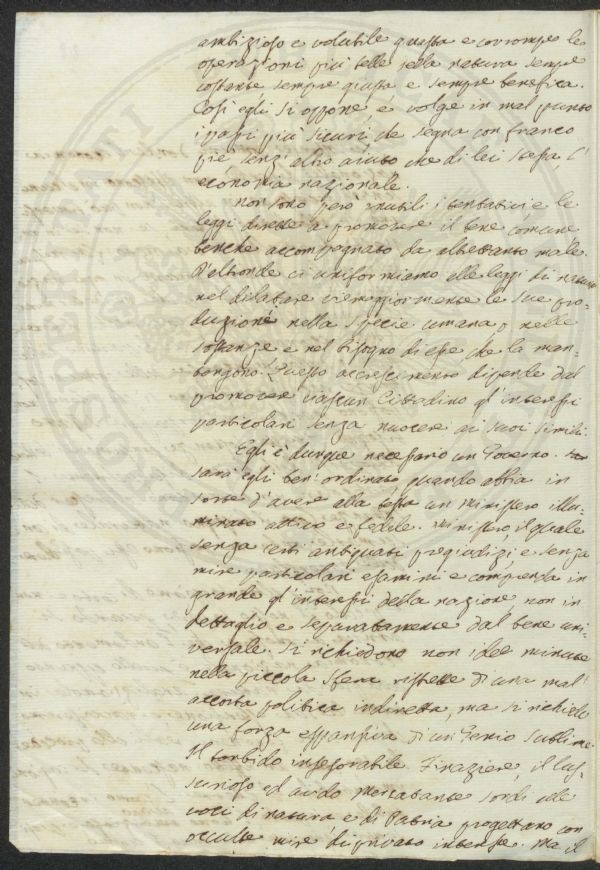 ambizioso e volubile guasta e corrompe le
operazioni più belle della natura sempre
costante sempre giusta e sempre benefica.
Così egli si oppone e volge in mal punto
i passi più sicuri che segna con franco
piè senz' altro aiuto che di lei stessa, l'
economia nazionale.
Non sono però inutili i tentativi e le
leggi dirette a promovere il bene comune
benche accompagnato da altrettanto male.
D'altronde ci uniformiamo alle leggi di natura
nel dilatare viemaggiormente le sue pro-
duzioni nella specie umana, nelle
sostanze e nel bisogno di esse che la man-
tengono. Questo accrescimento dipende dal
promovere ciascun Cittadino gl' interessi
particolari senza nuocere ai suoi simili.
Egli è dunque necessario un Governo.
sarà egli ben' ordinato quando abbia in
sorte d'avere alla testa un Ministero illu-
minato attivo e fedele. Ministero, il quale
senza certi antiquati pregiudizi e senza
mire particolari esamini e comprenda in
grande gl' interessi della nazione non in
dettaglio e separatamente dal bene uni-
versale. Si richiedono non idee minute
nella piccola sfera ristrette d'una mal'
accorta politica indiretta, ma si richiede
una forza espansiva d'un Genio sublime.
Il torbido inesorabile Finaziere, il lus-
surioso ed avido Mercatante sordi alle
voci di natura e di Patria progettano con
occulte mire di privato interesse. Ma il